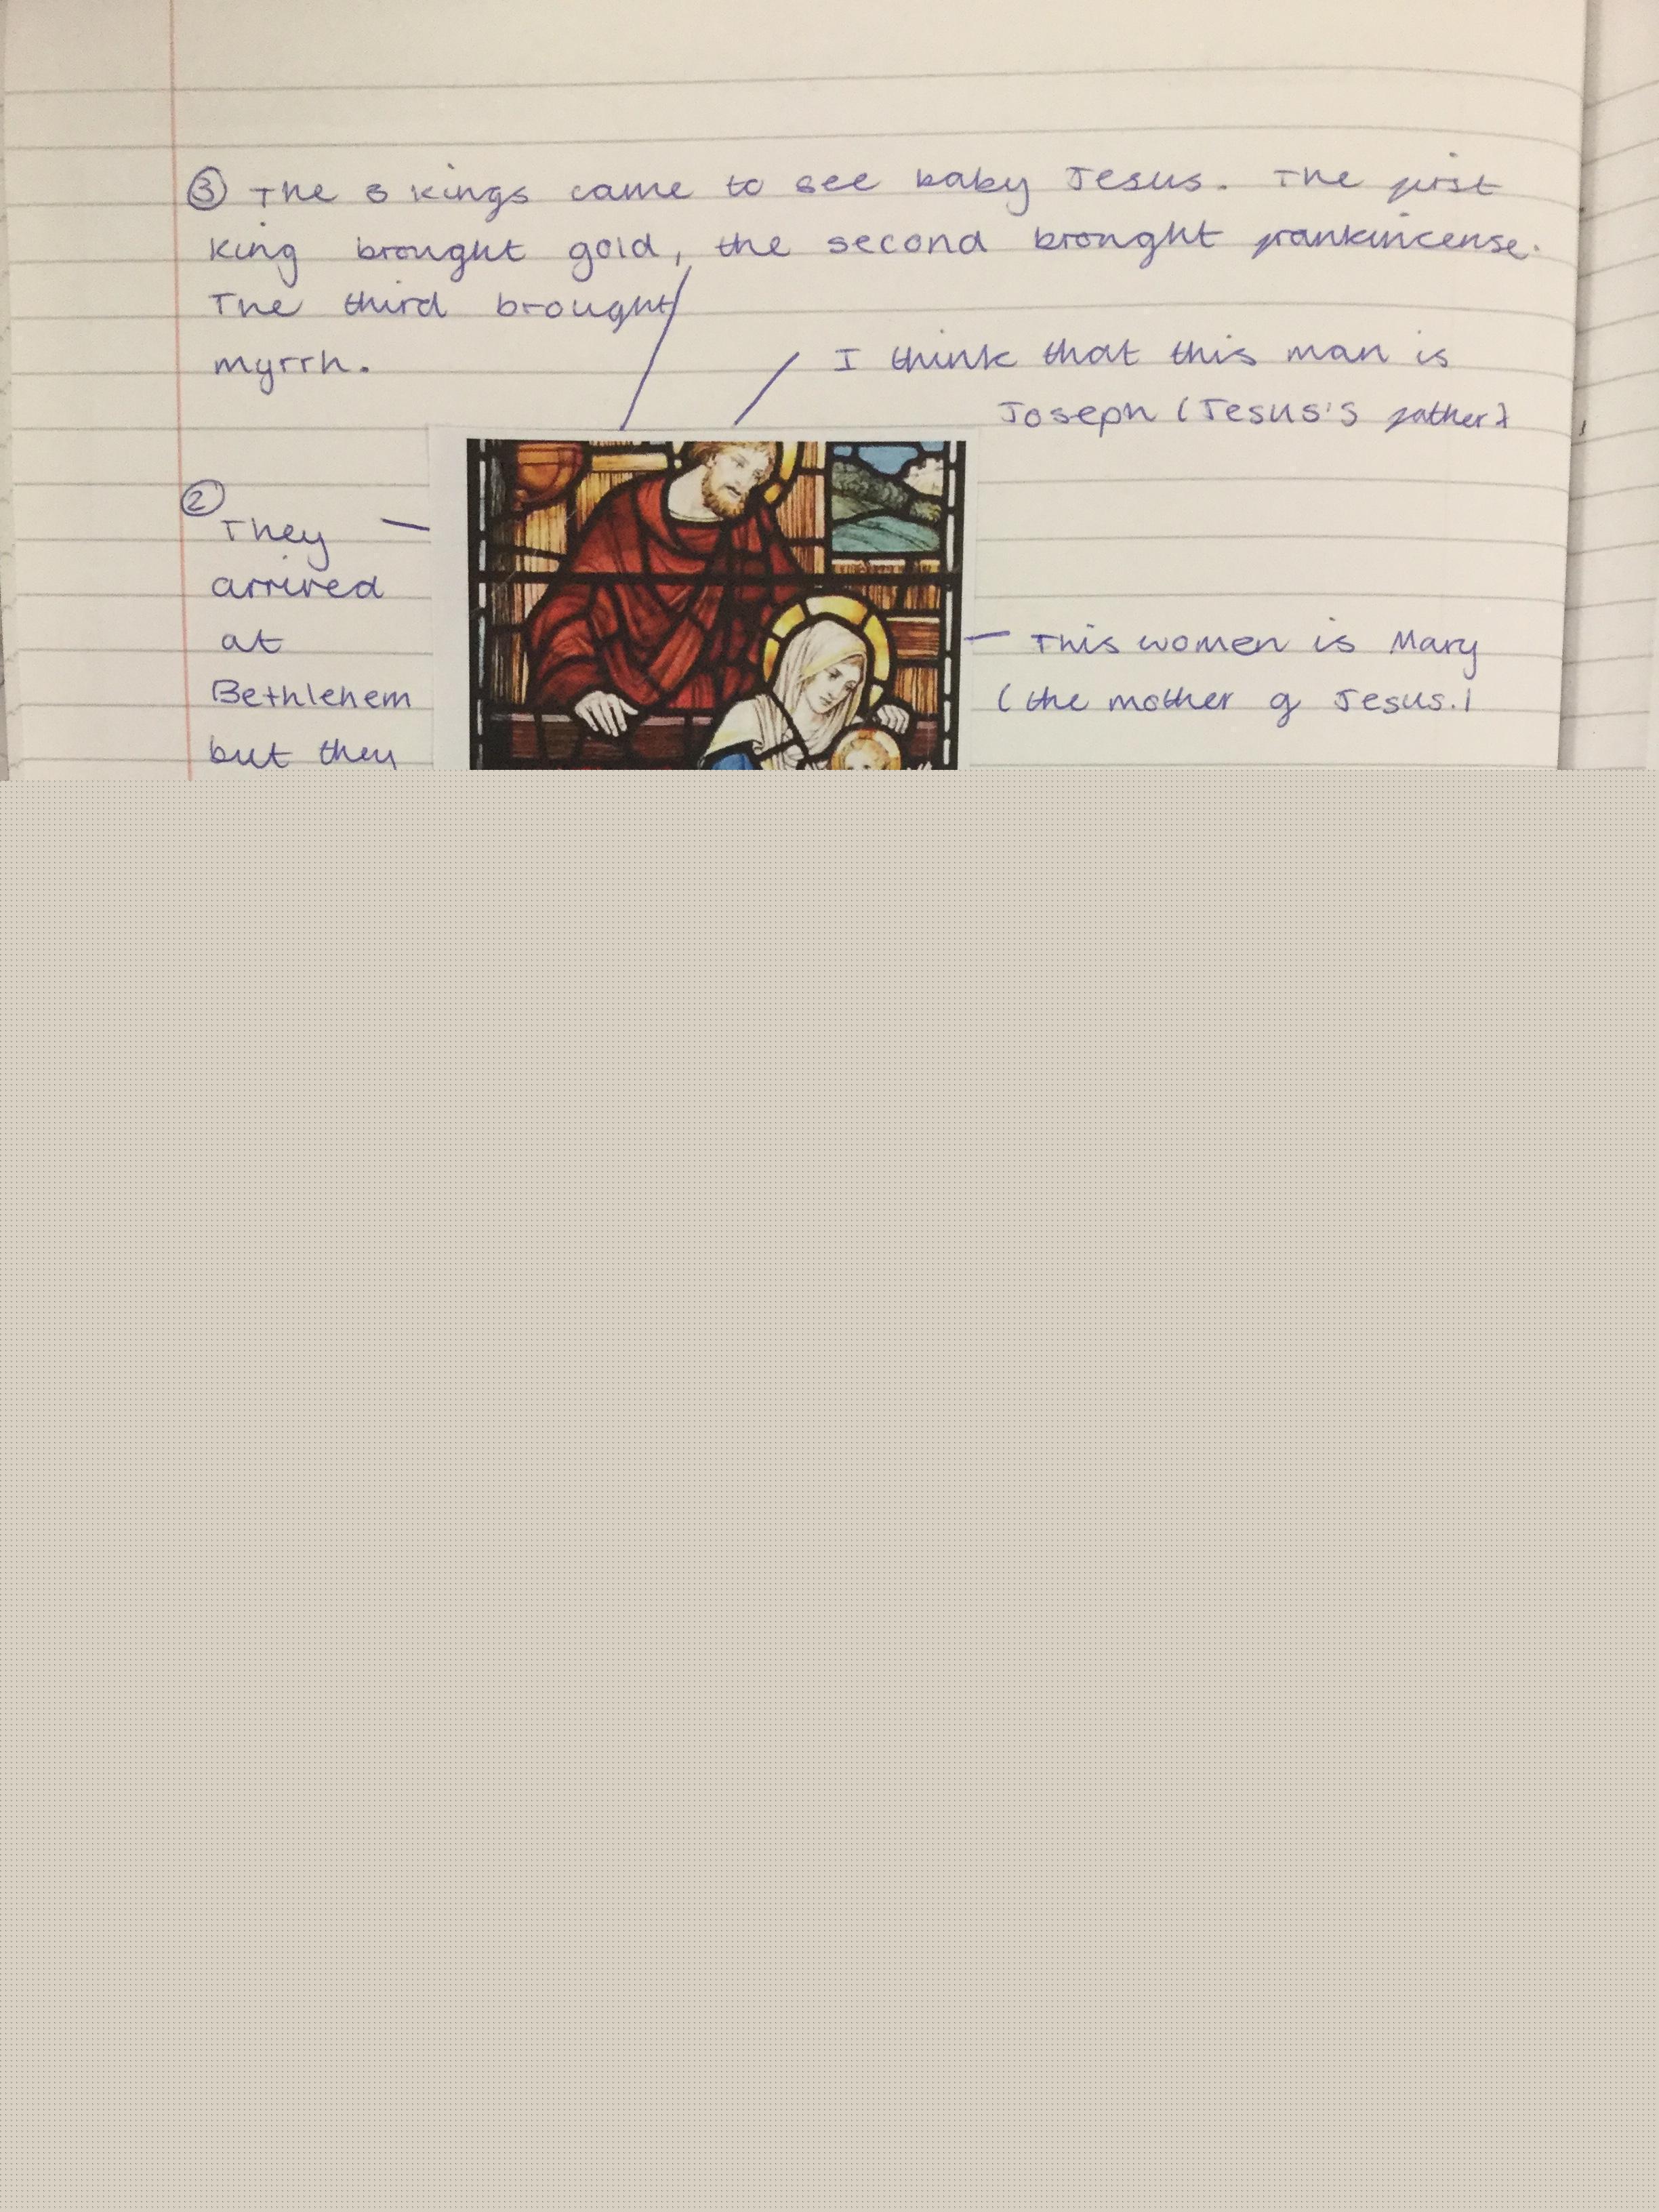 ③ The 3 kings came to see baby Jesus. The first
king brought gold, the second brought frankincense.
The third brought
myrrh.
I think that this man is
Joseph (Jesus's father)
②
They
arrived
at
Bethlehem
but they
This women is Mary
(the mother of Jesus.)